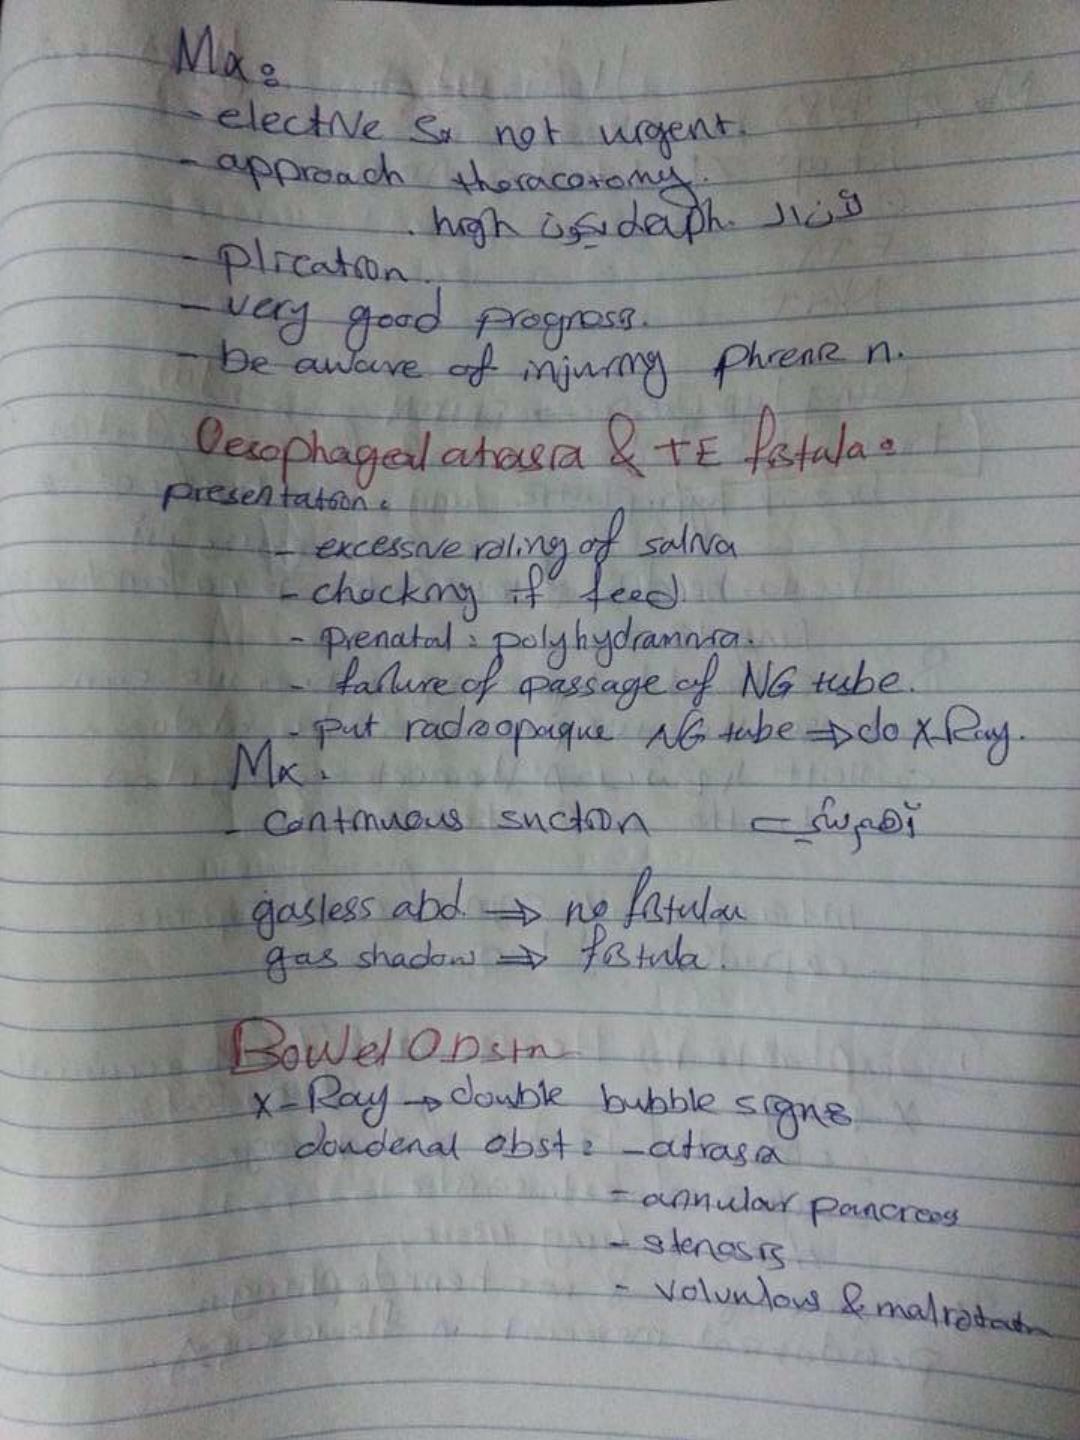 Mx:
- elective Sx not urgent.
- approach thoracotomy.
لأن ال diaph. بيكون high.
- plication.
- very good prognosis.
- be aware of injuring phrenic n.
Oesophageal atrasia & TE fistula:
presentation:
- excessive roling of saliva
- chocking if feed.
- prenatal: polyhydramnia.
- failure of passage of NG tube.
- put radioopaque NG tube ⇒ do X-Ray.
Mx:
- continuous suction أهم شي
gasless abd. ⇒ no fistulau
gas shadow ⇒ fistula.
Bowel Obstn
X-Ray → double bubble signs
doudenal obst: - atrasia
- annular pancreas
- stenosis
- voluvlous & malrotatn